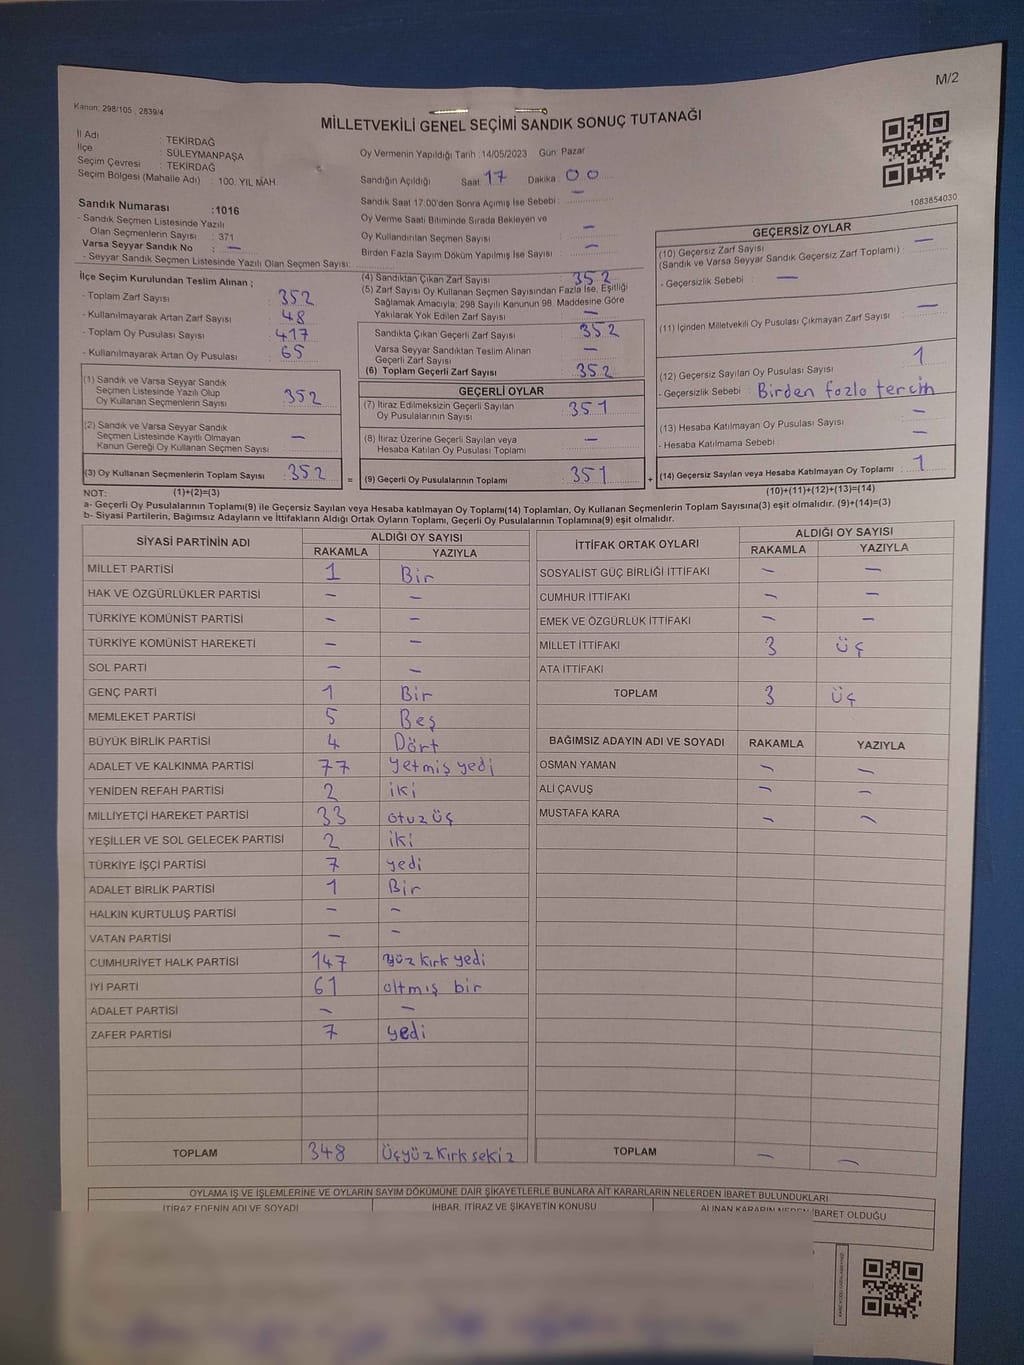 M/2
Kanun: 298/105 , 2839/4
MİLLETVEKİLİ GENEL SEÇİMİ SANDIK SONUÇ TUTANAĞI
İl Adı : TEKİRDAĞ
İlçe : SÜLEYMANPAŞA
Seçim Çevresi : TEKİRDAĞ
Seçim Bölgesi (Mahalle Adı) : 100. YIL MAH.
Sandık Numarası :1016
- Sandık Seçmen Listesinde Yazılı
Olan Seçmenlerin Sayısı : 371
Varsa Seyyar Sandık No : –
- Seyyar Sandık Seçmen Listesinde Yazılı Olan Seçmen Sayısı:
Oy Vermenin Yapıldığı Tarih :14/05/2023 Gün: Pazar
Sandığın Açıldığı Saat 17 Dakika : 00
Sandık Saat 17:00'den Sonra Açımış İse Sebebi : –
Oy Verme Saati Bitiminde Sırada Bekleyen ve
Oy Kullandırılan Seçmen Sayısı –
Birden Fazla Sayım Döküm Yapılmış İse Sayısı : –
1083854030
İlçe Seçim Kurulundan Teslim Alınan ;
- Toplam Zarf Sayısı : 352
- Kullanılmayarak Artan Zarf Sayısı : 48
- Toplam Oy Pusulası Sayısı : 417
- Kullanılmayarak Artan Oy Pusulası : 65
(1) Sandık ve Varsa Seyyar Sandık
Seçmen Listesinde Yazılı Olup
Oy Kullanan Seçmenlerin Sayısı : 352
(2) Sandık ve Varsa Seyyar Sandık
Seçmen Listesinde Kayıtlı Olmayan
Kanun Gereği Oy Kullanan Seçmen Sayısı : –
(3) Oy Kullanan Seçmenlerin Toplam Sayısı : 352
(4) Sandıktan Çıkan Zarf Sayısı : 352
(5) Zarf Sayısı Oy Kullanan Seçmen Sayısından Fazla İse, Eşitliği
Sağlamak Amacıyla; 298 Sayılı Kanunun 98. Maddesine Göre
Yakılarak Yok Edilen Zarf Sayısı : –
Sandıkta Çıkan Geçerli Zarf Sayısı : 352
Varsa Seyyar Sandıktan Teslim Alınan
Geçerli Zarf Sayısı : –
(6) Toplam Geçerli Zarf Sayısı : 352
GEÇERLİ OYLAR
(7) İtiraz Edilmeksizin Geçerli Sayılan
Oy Pusulalarının Sayısı : 351
(8) İtiraz Üzerine Geçerli Sayılan veya
Hesaba Katılan Oy Pusulası Toplamı : –
= (9) Geçerli Oy Pusulalarının Toplamı : 351 +
GEÇERSİZ OYLAR
(10) Geçersiz Zarf Sayısı : –
(Sandık ve Varsa Seyyar Sandık Geçersiz Zarf Toplamı)
- Geçersizlik Sebebi : –
(11) İçinden Milletvekili Oy Pusulası Çıkmayan Zarf Sayısı : –
(12) Geçersiz Sayılan Oy Pusulası Sayısı : 1
- Geçersizlik Sebebi : Birden fazla tercih
(13) Hesaba Katılmayan Oy Pusulası Sayısı : –
- Hesaba Katılmama Sebebi : –
(14) Geçersiz Sayılan veya Hesaba Katılmayan Oy Toplamı : 1
NOT: (1)+(2)=(3)
(10)+(11)+(12)+(13)=(14)
a- Geçerli Oy Pusulalarının Toplamı(9) ile Geçersiz Sayılan veya Hesaba Katılmayan Oy Toplamı(14) Toplamları, Oy Kullanan Seçmenlerin Toplam Sayısına(3) eşit olmalıdır. (9)+(14)=(3)
b- Siyasi Partilerin, Bağımsız Adayların ve İttifakların Aldığı Ortak Oyların Toplamı, Geçerli Oy Pusulalarının Toplamına(9) eşit olmalıdır.
SİYASİ PARTİNİN ADI ALDIĞI OY SAYISI
RAKAMLA YAZIYLA
MİLLET PARTİSİ 1 Bir
HAK VE ÖZGÜRLÜKLER PARTİSİ – –
TÜRKİYE KOMÜNİST PARTİSİ – –
TÜRKİYE KOMÜNİST HAREKETİ – –
SOL PARTİ – –
GENÇ PARTİ 1 Bir
MEMLEKET PARTİSİ 5 Beş
BÜYÜK BİRLİK PARTİSİ 4 Dört
ADALET VE KALKINMA PARTİSİ 77 Yetmiş yedi
YENİDEN REFAH PARTİSİ 2 iki
MİLLİYETÇİ HAREKET PARTİSİ 33 otuz üç
YEŞİLLER VE SOL GELECEK PARTİSİ 2 iki
TÜRKİYE İŞÇİ PARTİSİ 7 yedi
ADALET BİRLİK PARTİSİ 1 Bir
HALKIN KURTULUŞ PARTİSİ – –
VATAN PARTİSİ – –
CUMHURİYET HALK PARTİSİ 147 yüz kırk yedi
İYİ PARTİ 61 altmış bir
ADALET PARTİSİ – –
ZAFER PARTİSİ 7 yedi
TOPLAM 348 Üçyüz Kırk sekiz
İTTİFAK ORTAK OYLARI ALDIĞI OY SAYISI
RAKAMLA YAZIYLA
SOSYALİST GÜÇ BİRLİĞİ İTTİFAKI – –
CUMHUR İTTİFAKI – –
EMEK VE ÖZGÜRLÜK İTTİFAKI – –
MİLLET İTTİFAKI 3 üç
ATA İTTİFAKI
TOPLAM 3 üç
BAĞIMSIZ ADAYIN ADI VE SOYADI RAKAMLA YAZIYLA
OSMAN YAMAN – –
ALİ ÇAVUŞ – –
MUSTAFA KARA – –
TOPLAM – –
OYLAMA İŞ VE İŞLEMLERİNE VE OYLARIN SAYIM DÖKÜMÜNE DAİR ŞİKAYETLERLE BUNLARA AİT KARARLARIN NELERDEN İBARET BULUNDUKLARI
İTİRAZ EDENİN ADI VE SOYADI İHBAR, İTİRAZ VE ŞİKAYETİN KONUSU ALINAN KARARIN NEDEN İBARET OLDUĞU